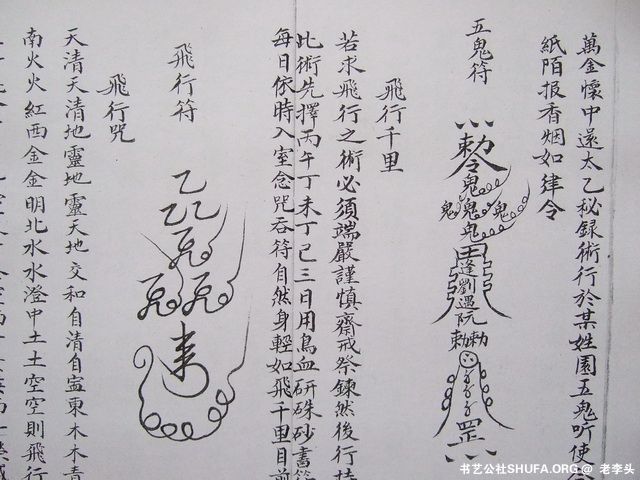 萬金懷中還太乙秘録術行於某姓園五鬼听使令
紙陌报香烟如律令
五鬼符
勅令
鬼
鬼鬼鬼
鬼
逢劉遇阮
勅勅
罡
飛行千里
若求飛行之術必須端嚴謹慎齋戒祭鍊然後行持
此術先擇丙午丁未丁巳三日用鳥血研硃砂書符
每日依時入室念咒吞符自然身輕如飛千里目前
飛行符
飛行咒
天清天清地靈地靈天地交和自清自寍東木木青
南火火紅西金金明北水水澄中土土空空則飛行
书艺公社SHUFA.ORG@ 老李头